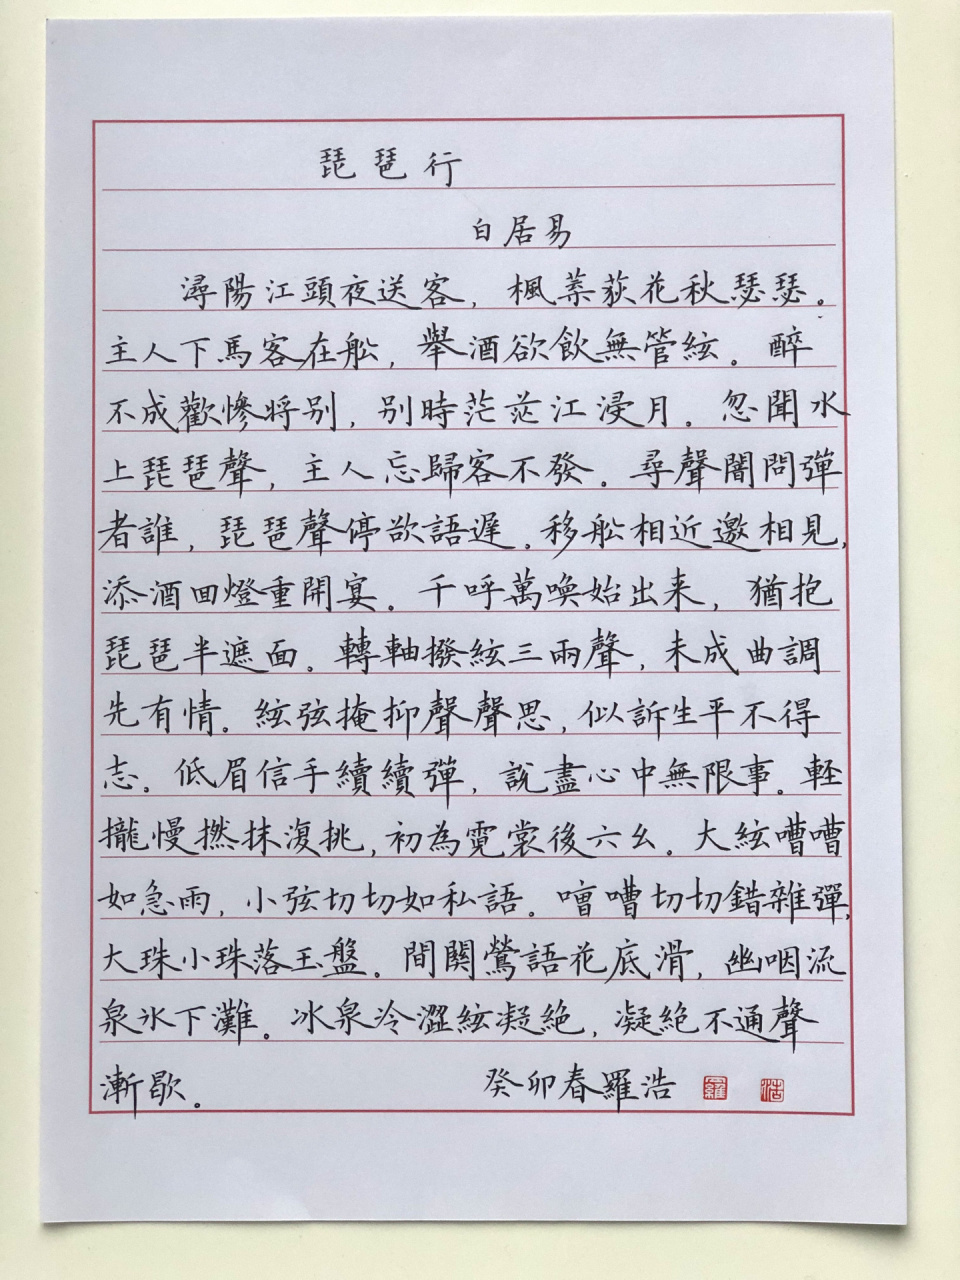 琵琶行
白居易
潯陽江頭夜送客，楓葉荻花秋瑟瑟。
主人下馬客在船，舉酒欲飲無管絃。醉
不成歡慘將別，別時茫茫江浸月。忽聞水
上琵琶聲，主人忘歸客不發。尋聲闇問彈
者誰，琵琶聲停欲語遲。移船相近邀相見，
添酒回燈重開宴。千呼萬喚始出来，猶抱
琵琶半遮面。轉軸撥絃三兩聲，未成曲調
先有情。絃弦掩抑聲聲思，似訴生平不得
志。低眉信手續續彈，說盡心中無限事。輕
攏慢撚抹復挑，初為霓裳後六幺。大絃嘈嘈
如急雨，小弦切切如私語。嘈嘈切切錯雜彈，
大珠小珠落玉盤。間關鶯語花底滑，幽咽流
泉氷下灘。冰泉冷澀絃凝絕，凝絕不通聲
漸歇。 癸卯春羅浩 羅 浩